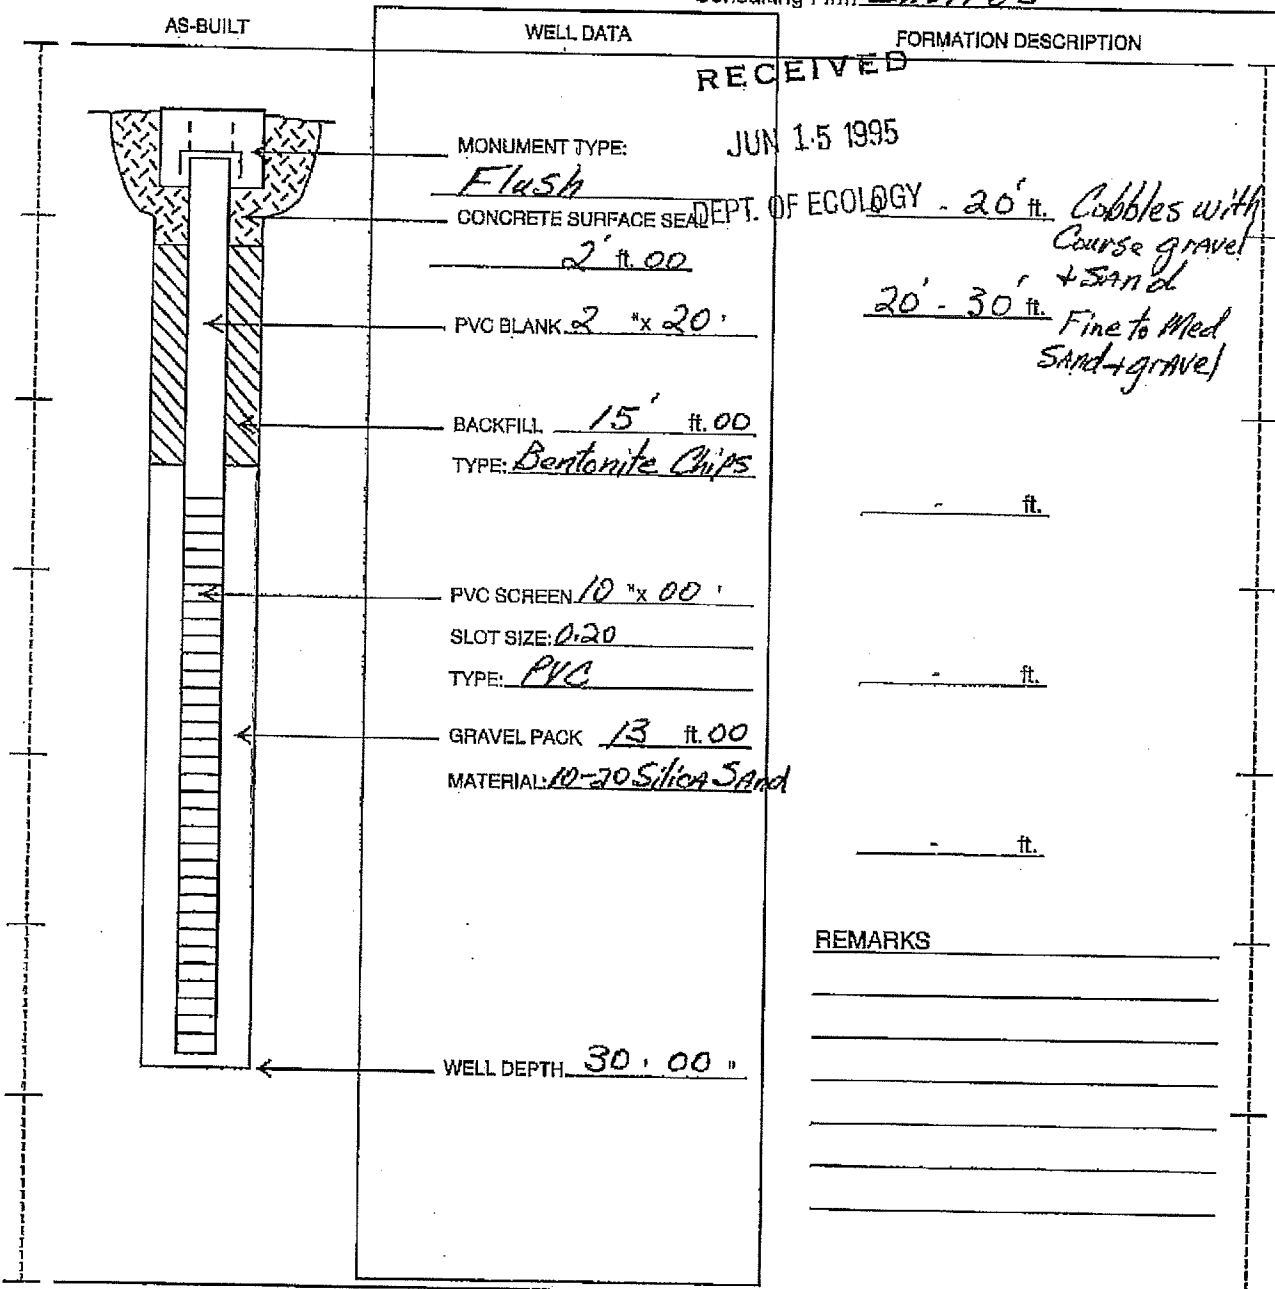 AS-BUILT
WELL DATA
FORMATION DESCRIPTION
RECEIVED
JUN 15 1995
DEPT. OF ECOLOGY
MONUMENT TYPE:
Flush
CONCRETE SURFACE SEAL
2' ft. 00
PVC BLANK 2 "x 20 '
BACKFILL 15' ft. 00
TYPE: Bentonite Chips
PVC SCREEN 10 "x 00 '
SLOT SIZE: 0.20
TYPE: PVC
GRAVEL PACK 13 ft. 00
MATERIAL: 10-20 Silica Sand
WELL DEPTH 30 ' 00 "
- 20' ft. Cobbles with
Course gravel
+ Sand
20' - 30' ft. Fine to Med
Sand + gravel
- ft.
- ft.
- ft.
REMARKS